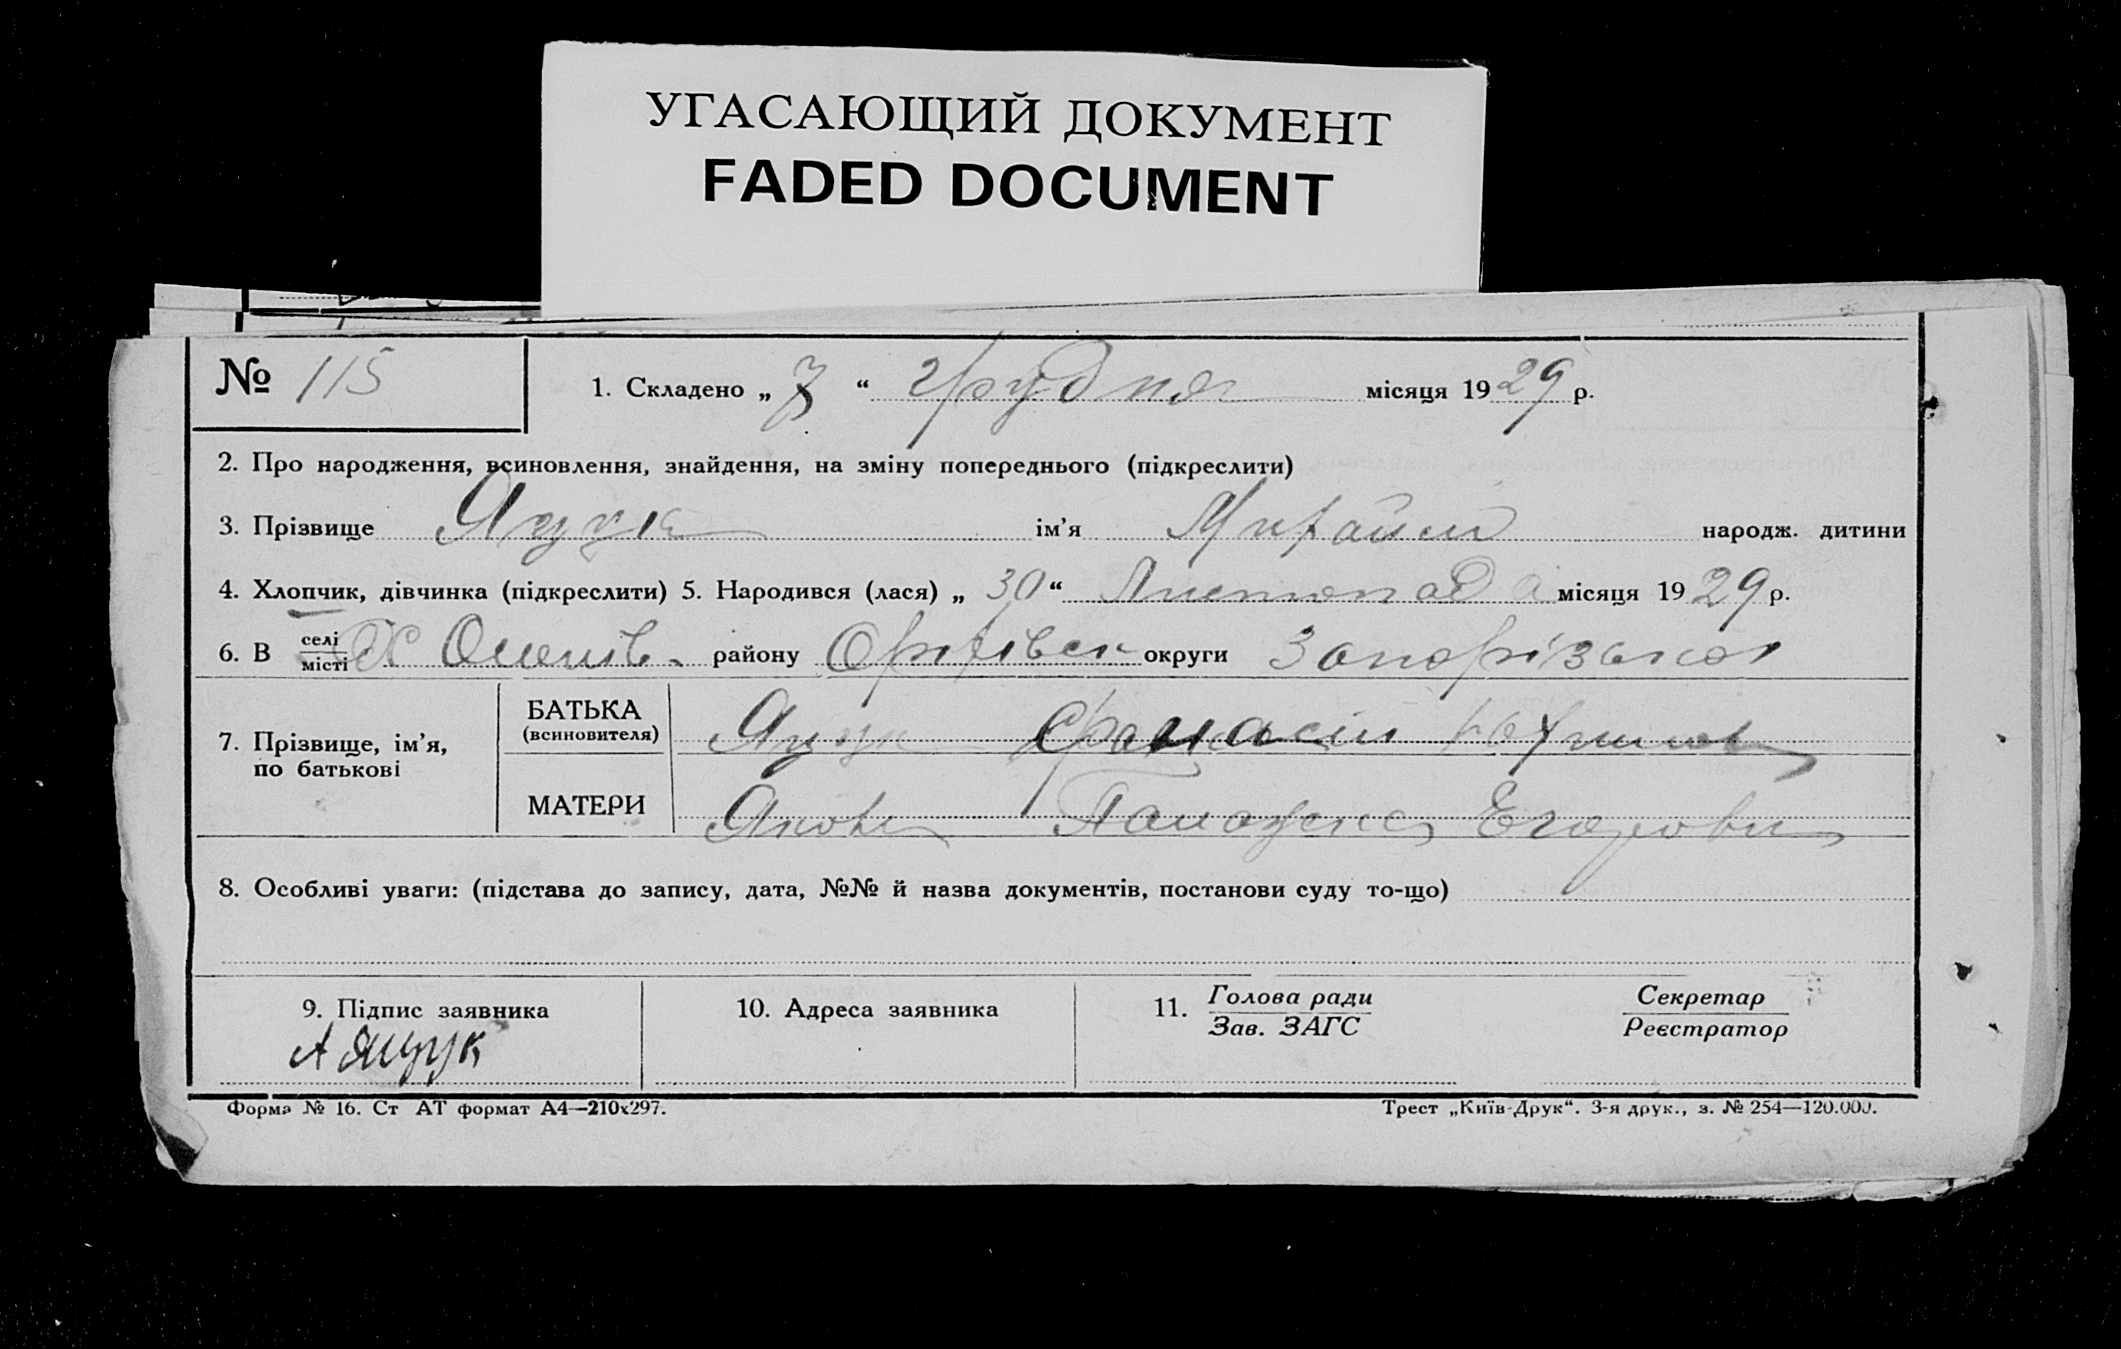 УГАСАЮЩИЙ ДОКУМЕНТ
FADED DOCUMENT
№ 115
1. Складено „ 7 “ грудня місяця 1929 р.
2. Про народження, всиновлення, знайдення, на зміну попереднього (підкреслити)
3. Прізвище Ящук ім’я Михайло народж. дитини
4. Хлопчик, дівчинка (підкреслити) 5. Народився (лася) „ 30 “ Листопада місяця 1929 р.
6. В селі місті Х району Оріхівськ округи Запорізької
7. Прізвище, ім’я, по батькові
БАТЬКА (всиновителя) Ящук
МАТЕРИ Егоровн
8. Особливі уваги: (підстава до запису, дата, №№ й назва документів, постанови суду то-що)
9. Підпис заявника
А Ящук
10. Адреса заявника
11. Голова ради
Зав. ЗАГС
Секретар
Реєстратор
Форма № 16. Ст АТ формат А4—210х297.
Трест „Київ-Друк“. 3-я друк., з. № 254—120.000.